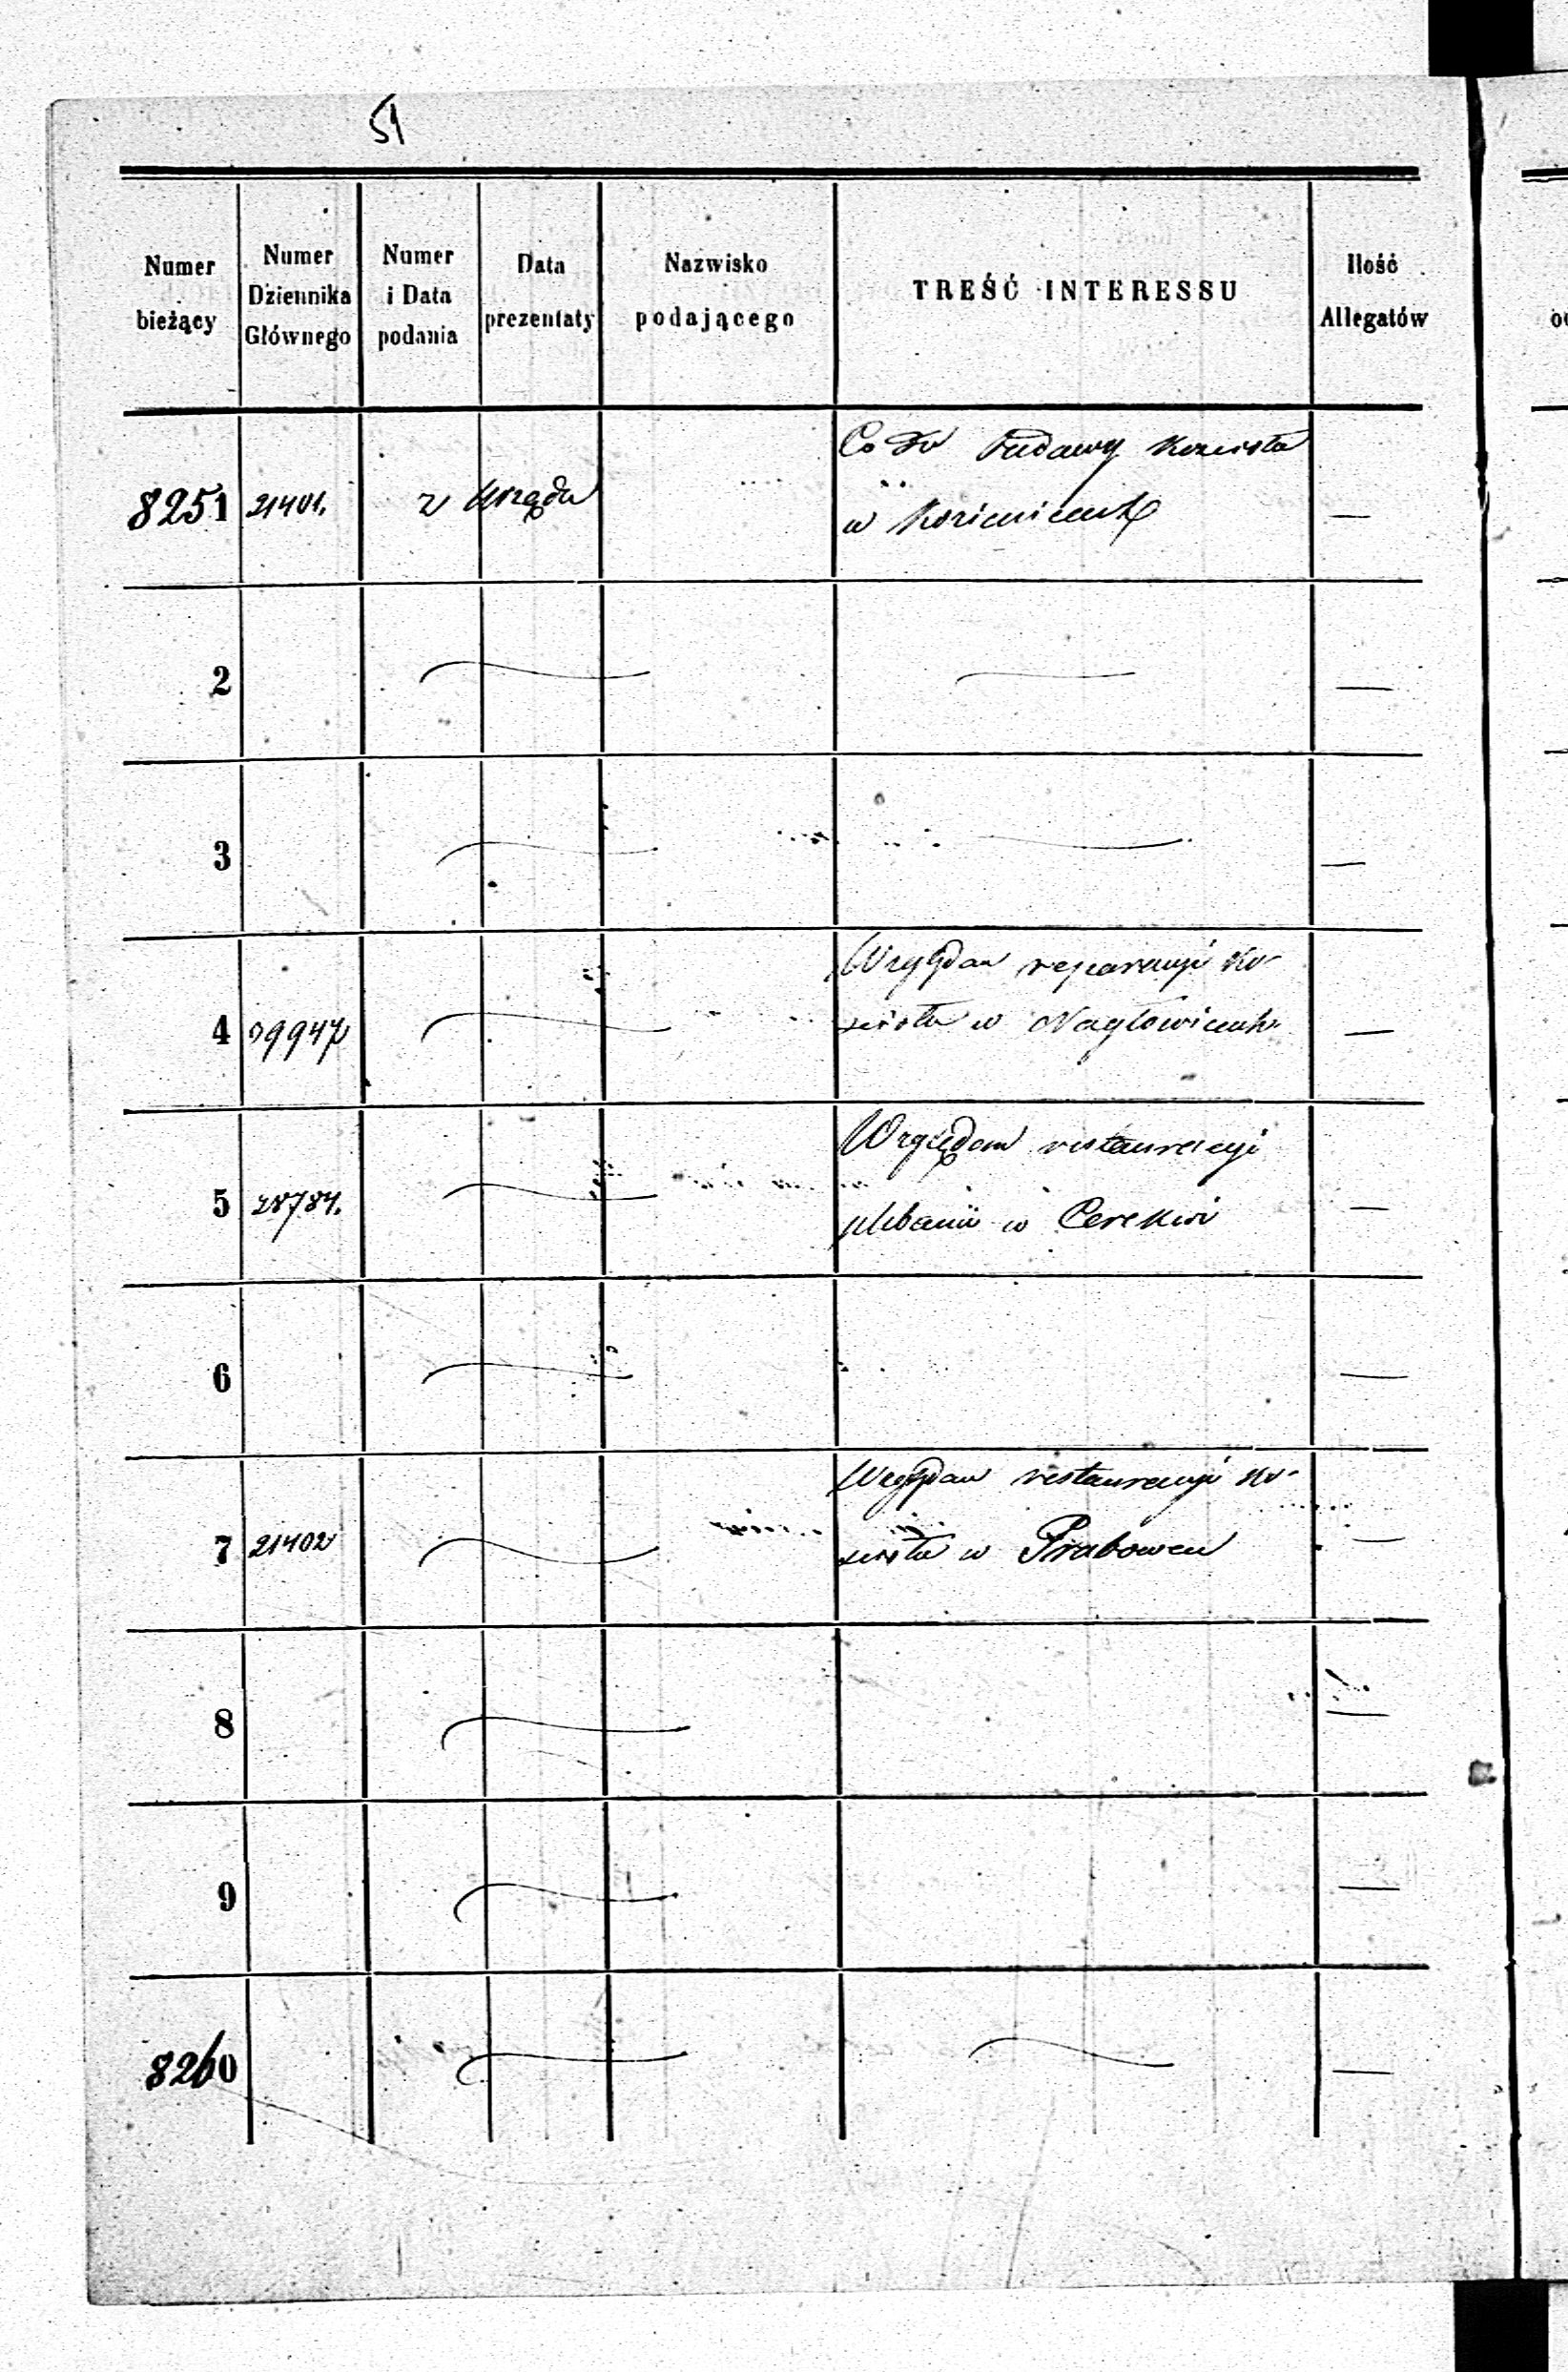 51
Numer bieżący
Numer Dziennika Głównego
Numer i Data podania
Data prezentaty
Nazwisko podającego
TREŚĆ INTERESSU
Ilość Allegatów
8251 21401. z Urzędu Co do budowy kościoła —
w Kozienicach
2 —
3 —
Względem reparacyi ko-
4 ścioła w Nagłowicach —
Względem restauracyi
5 28784. plebanii w Cerekwi —
6 —
Względem restauracyi ko-
7 21402 ścioła w —
8 —
9 —
8260 —